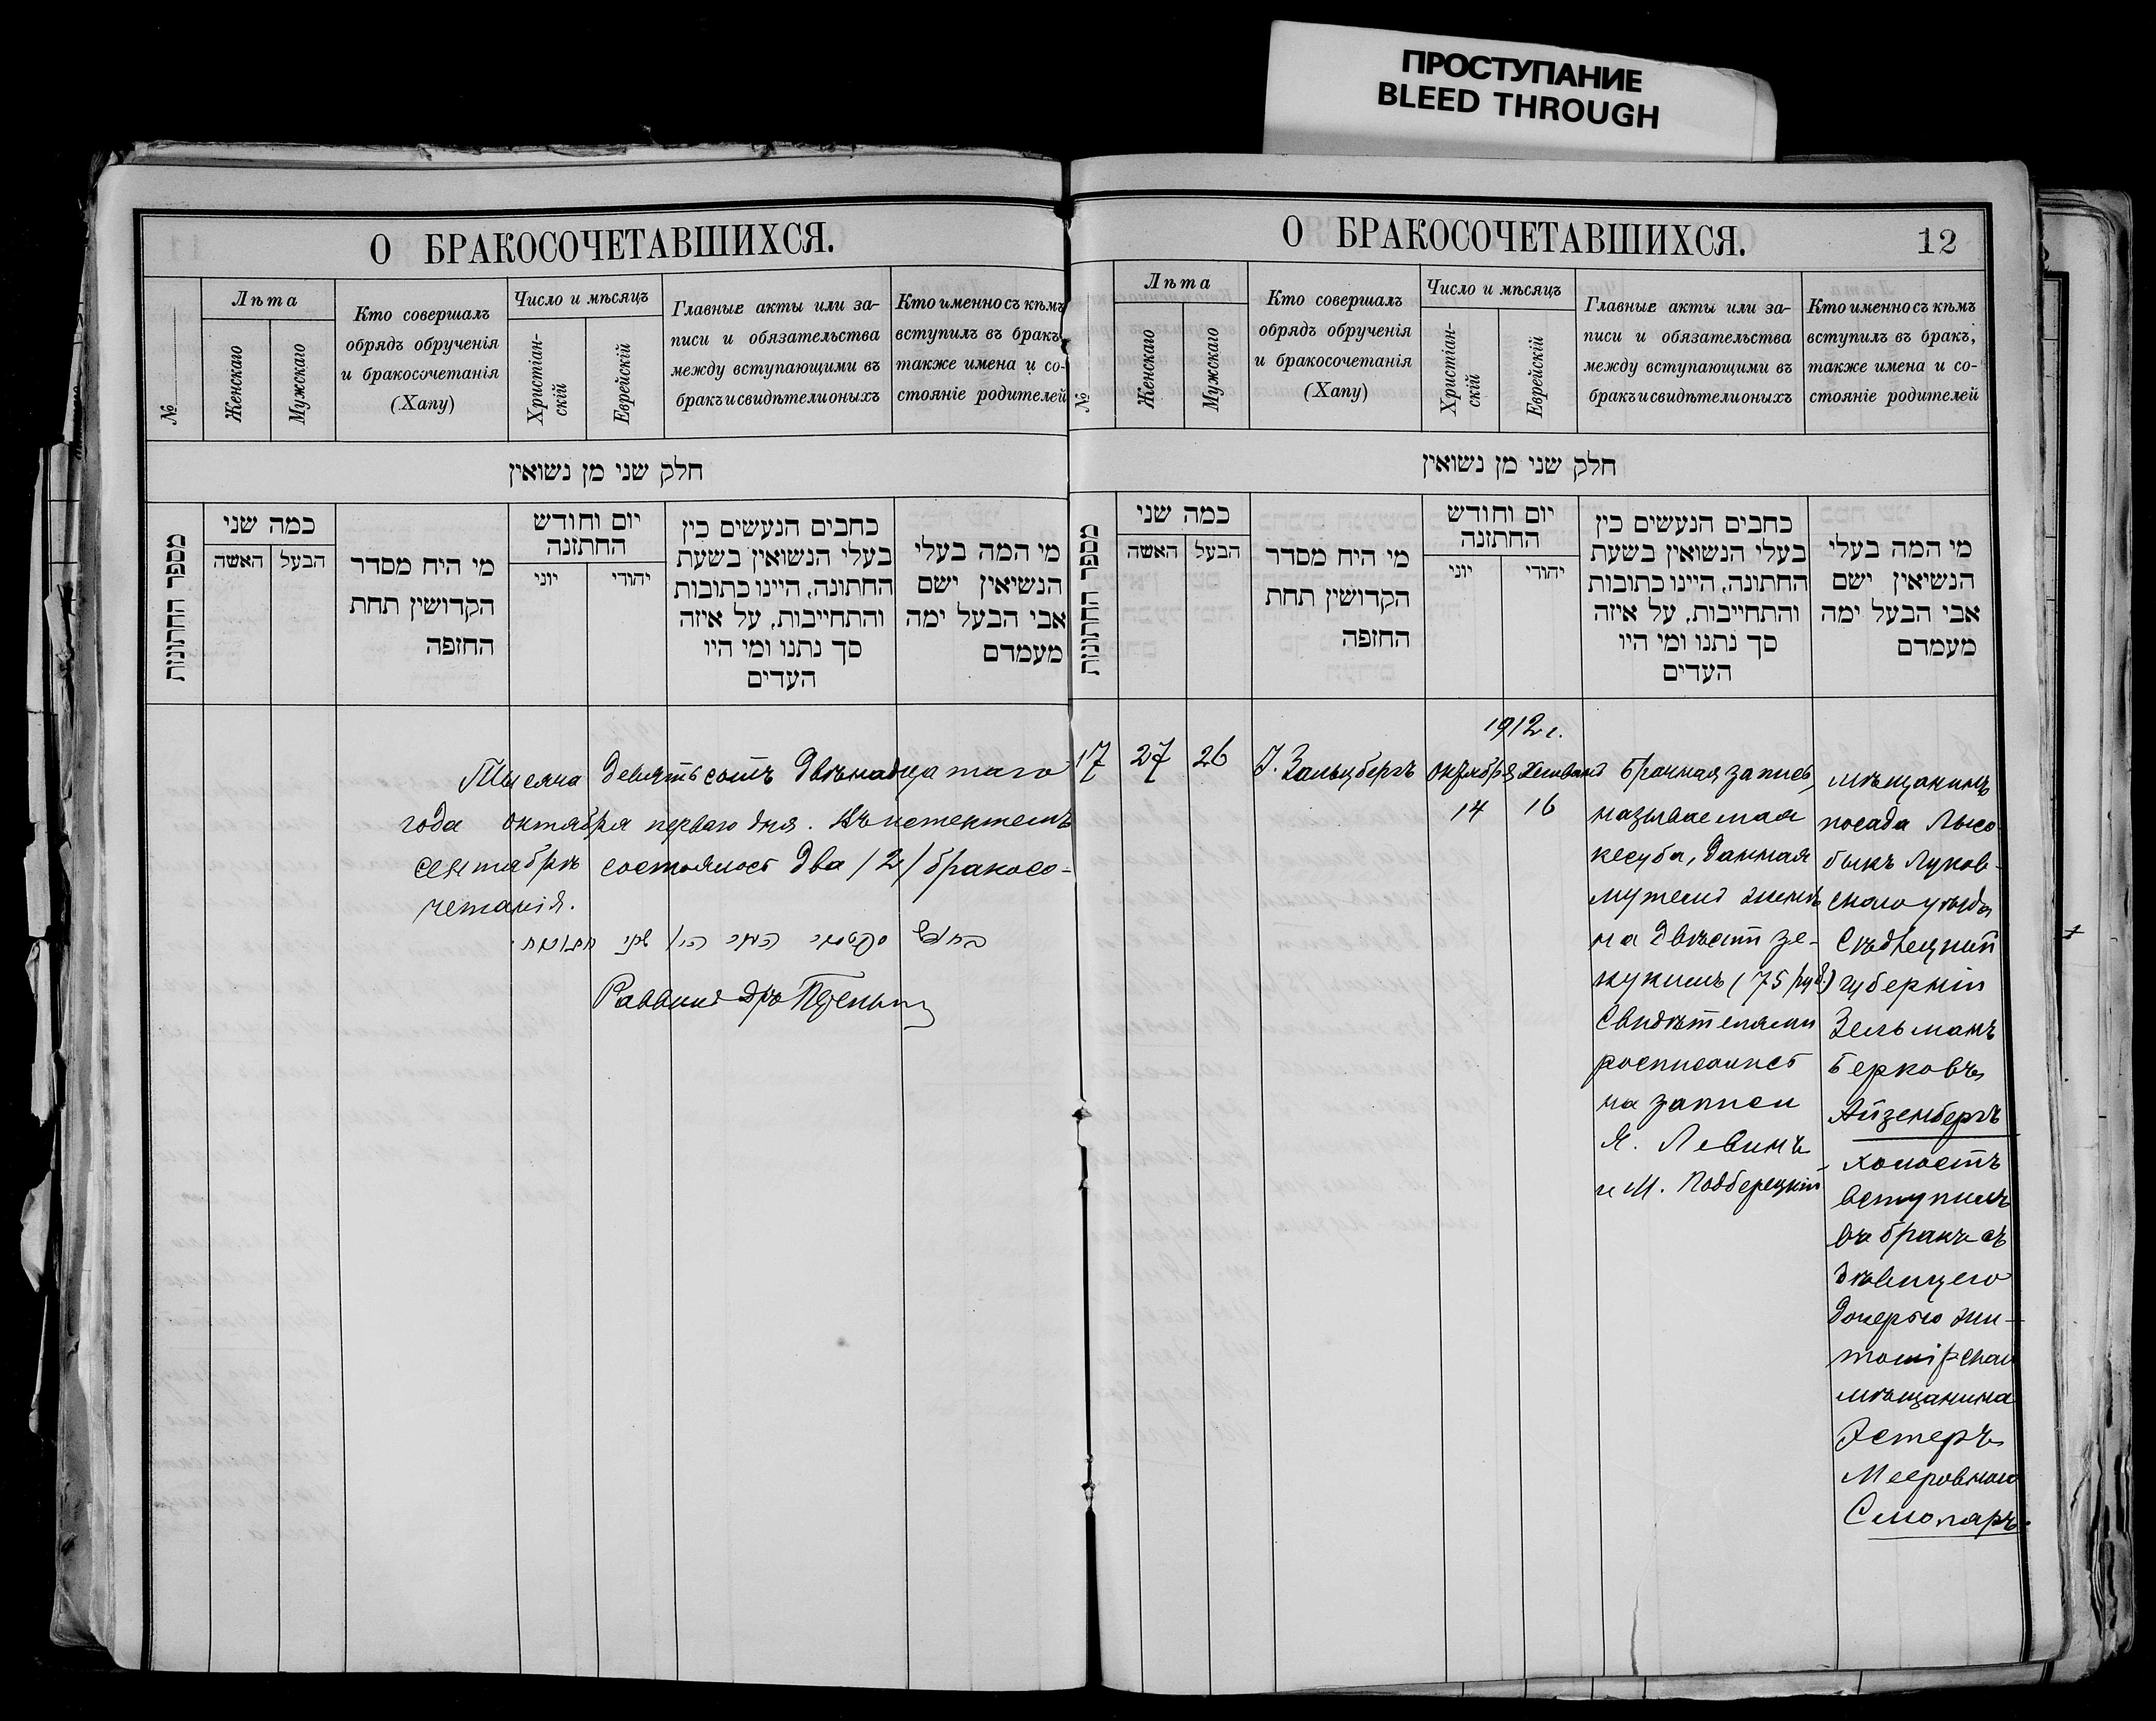 ПРОСТУПАНИЕ
BLEED THROUGH
О БРАКОСОЧЕТАВШИХСЯ.
№
Лѣта
Женскаго
Мужскаго
Кто совершалъ
обрядъ обрученія
и бракосочетанія
(Хапу)
Число и мѣсяцъ
Христіан-
скій
Еврейскій
Главные акты или за-
писи и обязательства
между вступающими въ
бракъ и свидѣтели оныхъ
Кто именно съ кѣмъ
вступилъ въ бракъ,
также имена и со-
стояніе родителей
חלק שני מן נשואין
מספר החתונות
כמה שני
האשה
הבעל
מי היח מסדר
הקדושין תחת
החופה
יום וחודש
החתונה
יוני
יהודי
כתבים הנעשים בין
בעלי הנשואין בשעת
החתונה, היינו כתובות
והתחייבות, על איזה
סך נתנו ומי היו
העדים
מי המה בעלי
הנשיאין ישם
אבי הבעל ימה
מעמדם
Тысяча девятьсотъ двѣнадцатаго
года октября перваго дня. Въ истекшемъ
сентябрѣ состоялось два /2/ бракосо-
четанія.
Раввинъ Д-ръ
О БРАКОСОЧЕТАВШИХСЯ.
12
№
Лѣта
Женскаго
Мужскаго
Кто совершалъ
обрядъ обрученія
и бракосочетанія
(Хапу)
Число и мѣсяцъ
Христіан-
скій
Еврейскій
Главные акты или за-
писи и обязательства
между вступающими въ
бракъ и свидѣтели оныхъ
Кто именно съ кѣмъ
вступилъ въ бракъ,
также имена и со-
стояніе родителей
חלק שני מן נשואין
מספר החתונות
כמה שני
האשה
הבעל
מי היח מסדר
הקדושין תחת
החופה
יום וחודש
החתונה
יוני
יהודי
כתבים הנעשים בין
בעלי הנשואין בשעת
החתונה, היינו כתובות
והתחייבות, על איזה
סך נתנו ומי היו
העדים
מי המה בעלי
הנשיאין ישם
אבי הבעל ימה
מעמדם
17
27
26
І. Зальцбергъ
1912 г.
Октября
14
Хешвана
16
Брачная запись,
называемая
кесуба, данная
мужемъ женѣ
на двѣсти зе-
кукимъ (75 руб.)
Свидѣтелями
росписались
на записи
Я. Левинъ
и М. Подберецкій
мѣщанинъ
посада Лысо-
быкъ Луков-
скаго уѣзда
Сѣдлецкой
губерніи
Зельманъ
Берковъ
Айзенбергъ
холостъ
вступилъ
въ бракъ съ
дѣвицею
дочерью жи-
томірскаго
мѣщанина
Эстеръ
Мееровною
Смоляръ.